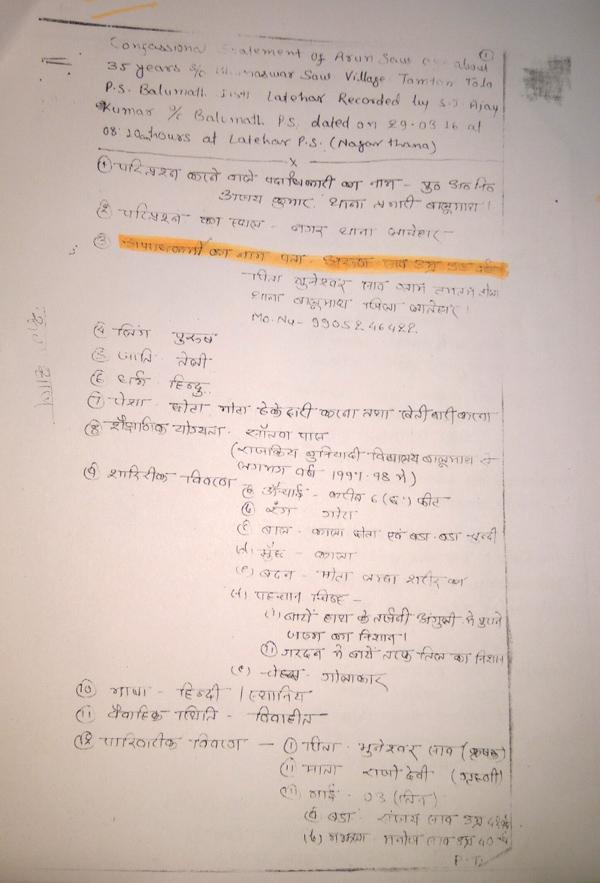 ①
Confassional Statement of Arun Saw about
35 years s/o Saw Village Tamtam Tola
P.S. Balumath जिला Latehar Recorded by S.I Ajay
Kumar P/c Balumath P.S. dated on 29-03-16 at
08:20 hours at Latehar P.S. (Nagar thana)
x
① परिप्रश्न करने वाले पदाधिकारी का नाम - पु० अ० नि०
अजय कुमार, थाना प्रभारी बालुमाथ।
② परिप्रश्न का स्थान - नगर थाना लातेहार
③ अपराधकर्मी का नाम पता - अरुण साव उम्र 35 वर्ष
पिता मुनेश्वर साव ग्राम टमटम टोला
थाना बालुमाथ जिला लातेहार।
Mo.No- 9905246422
④ लिंग पुरुष
⑤ जाति - तेली
⑥ धर्म - हिन्दू
⑦ पेशा - छोटा मोटा ठेकेदारी करना तथा खेती बारी करना
⑧ शैक्षणिक योग्यता - पास
(राजकिय बुनियादी विद्यालय बालुमाथ से
लगभग वर्ष 1997-98 में)
⑨ शारिरीक विवरण
(a) ऊँचाई - करीब 6 (छः) फीट
(b) रंग गोरा
(c) बाल - काला छोटा एवं बडा-बडा
(d) मुँछ - काला
(e) बदन - मोटा शरीर का
(f) पहचान चिन्ह -
(i) बायें हाथ के तर्जनी अंगुली में पुराने
जख्म का निशान।
(ii) गरदन में बायें तरफ तिल का निशान
(g) चेहरा - गोलाकार
⑩ भाषा - हिन्दी / स्थानिय
⑪ वैवाहिक स्थिति - विवाहीत
⑫ पारिवारीक विवरण - (i) पिता - मुनेश्वर साव (कृषक)
(ii) माता देवी (गृहणी)
(iii) भाई - 03 (तिन)
(a) बडा - संजय साव उम्र
(b) मझला - मनोज साव उम्र 40 वर्ष